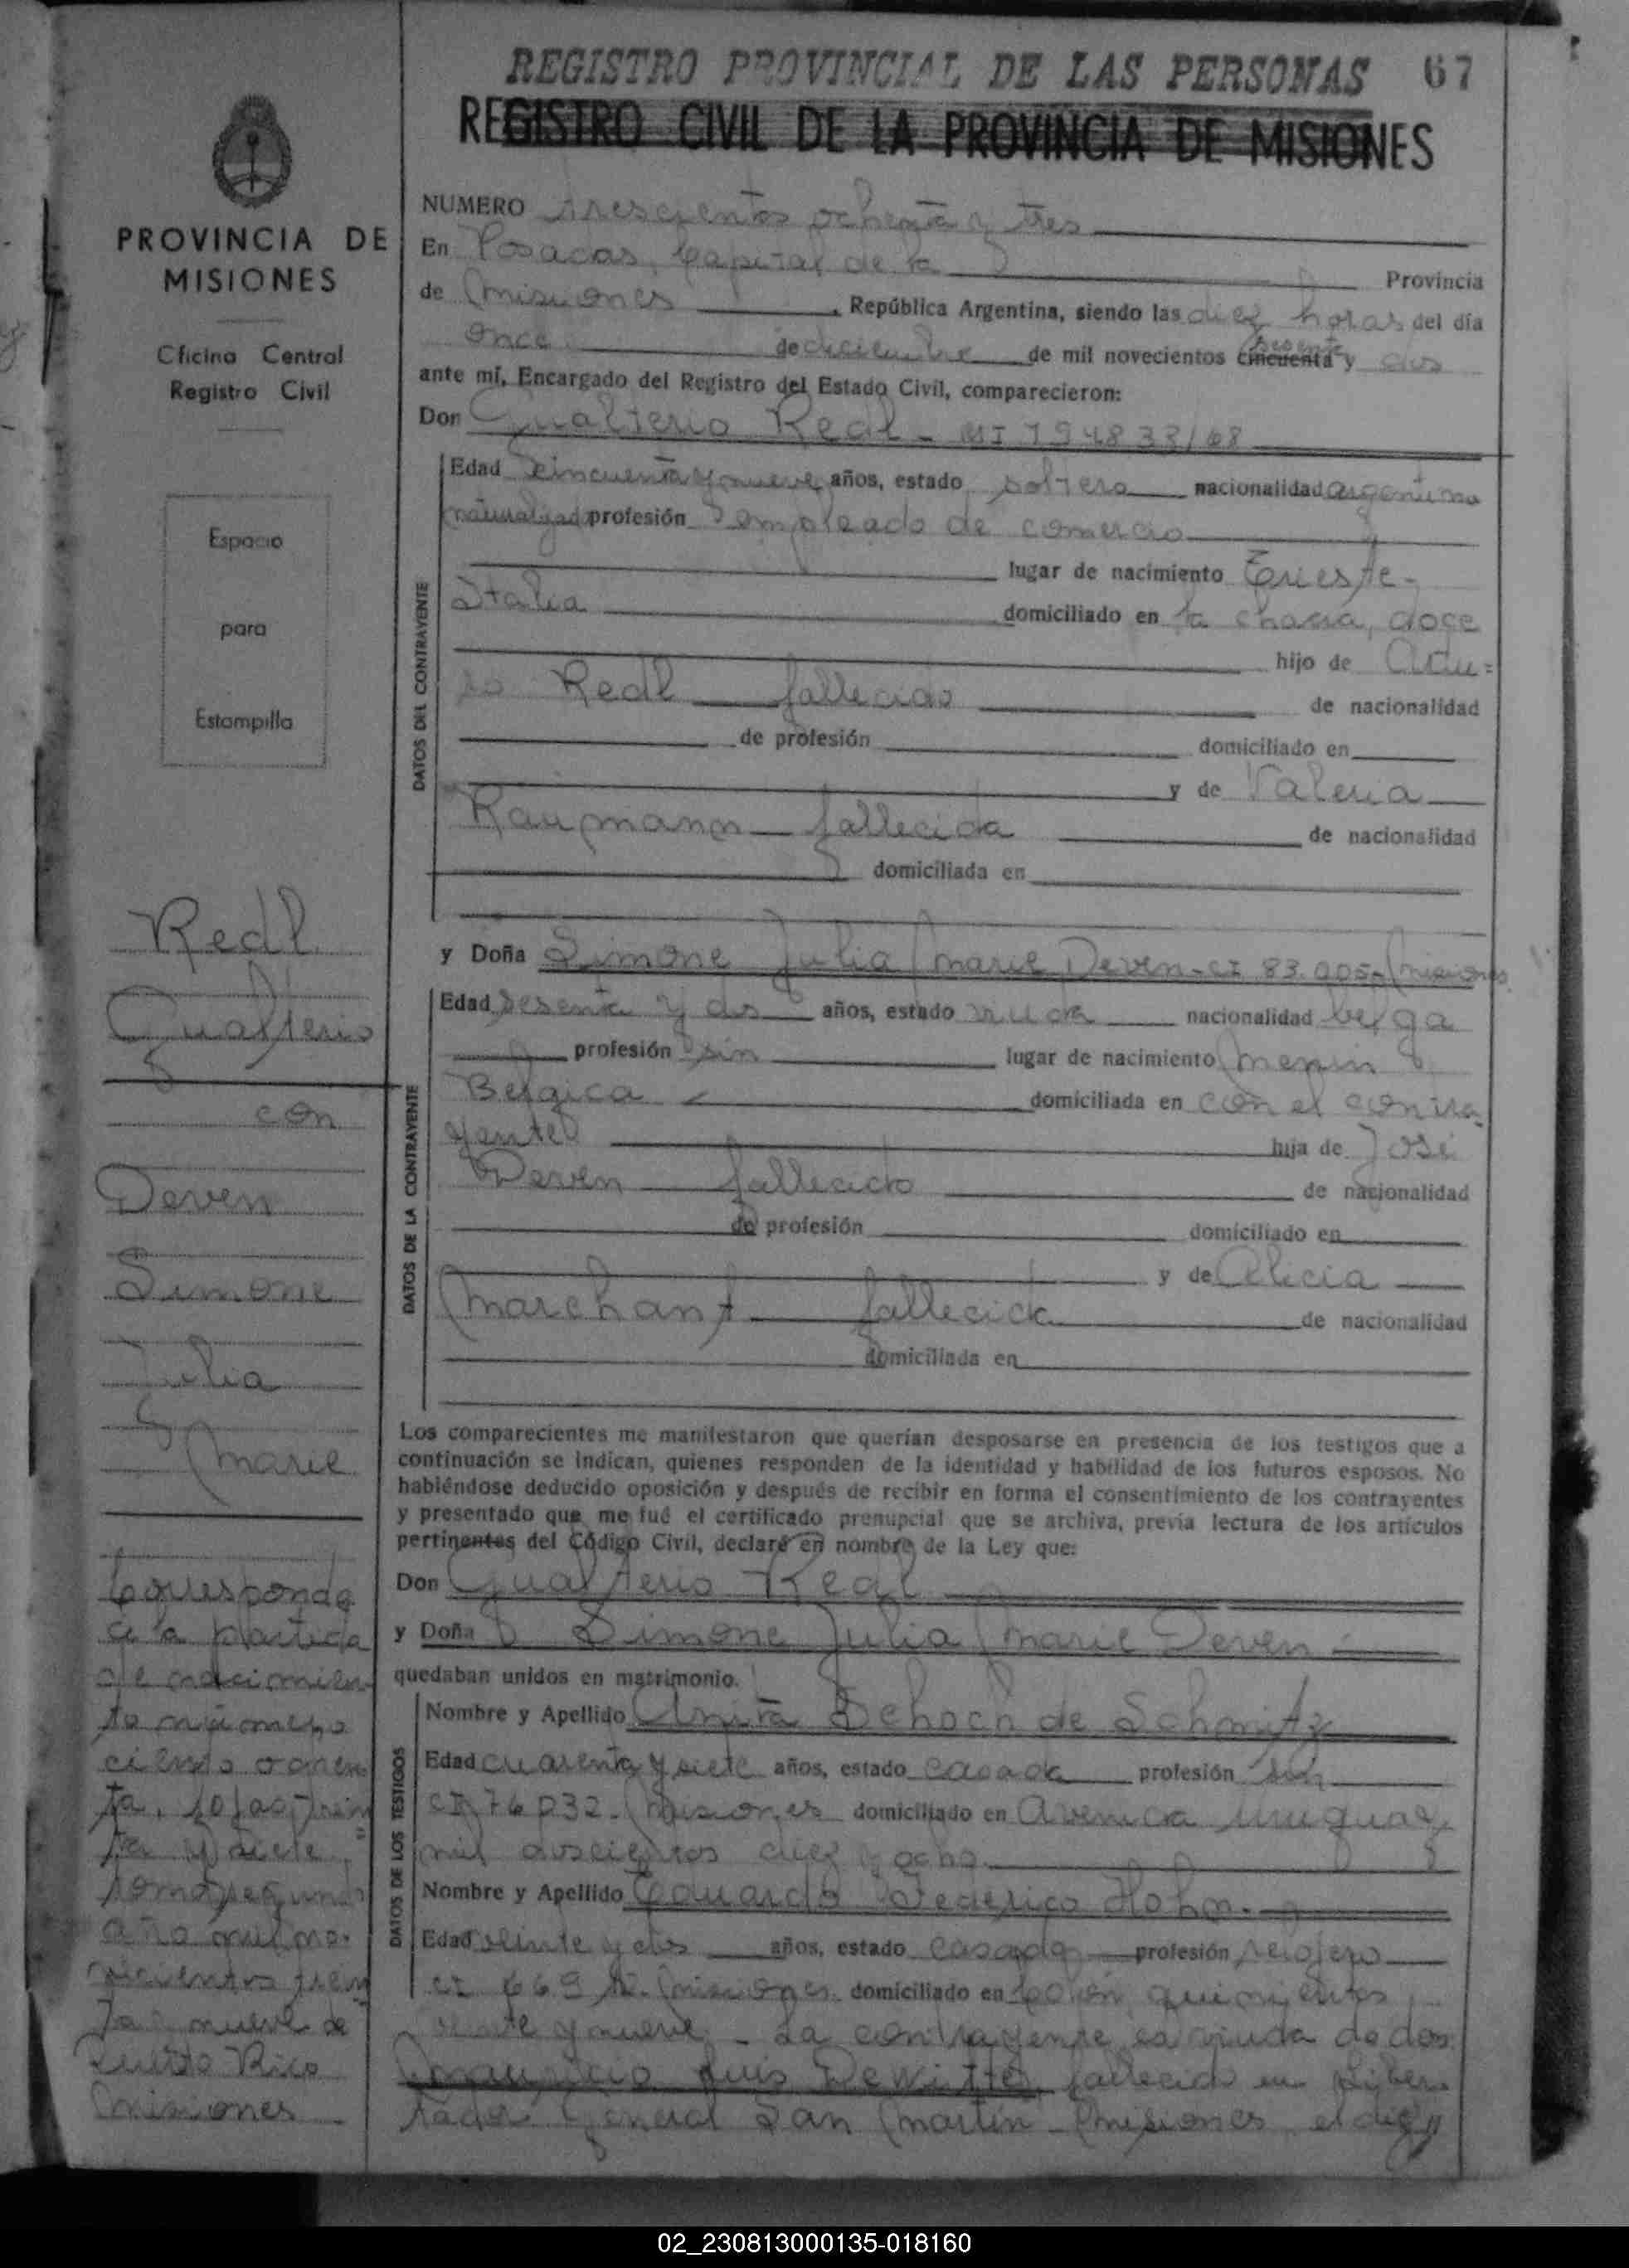 REGISTRO PROVINCIAL DE LAS PERSONAS 67
REGISTRO CIVIL DE LA PROVINCIA DE MISIONES
PROVINCIA DE
MISIONES
Oficina Central
Registro Civil
Espacio
para
Estampilla
Redl
Gualterio
con
Deven
Simone
Julia
Marie
Corresponde
a la partida
de nacimien
to número
ciento ochen
ta, fojas trein
ta y siete,
tomo segundo
año mil no-
vecientos trein
ta nueve de
Puerto Rico
Misiones
NUMERO trescientos ochenta y tres
En Posadas, Capital de la Provincia
de Misiones, República Argentina, siendo las diez horas del día
once de diciembre de mil novecientos cincuenta sesenta y dos
ante mí, Encargado del Registro del Estado Civil, comparecieron:
Don Gualterio Redl - MI 194833/68
DATOS DEL CONTRAYENTE
Edad cincuenta y nueve años, estado soltero nacionalidad argentino
naturalizado profesión empleado de comercio
lugar de nacimiento Trieste-
Italia domiciliado en la chacra, doce
hijo de Artu=
ro Redl fallecido de nacionalidad
de profesión domiciliado en
y de Valeria
Raupmann fallecida de nacionalidad
domiciliada en
y Doña Simone Julia Marie Deven - CI 83.005- Misiones
DATOS DE LA CONTRAYENTE
Edad sesenta y dos años, estado viuda nacionalidad belga
profesión sin lugar de nacimiento Menin
Belgica domiciliada en con el contra
yente hija de José
Deven fallecido de nacionalidad
de profesión domiciliado en
y de Alicia
Marchant fallecida de nacionalidad
domiciliada en
Los comparecientes me manifestaron que querían desposarse en presencia de los testigos que a
continuación se indican, quienes responden de la identidad y habilidad de los futuros esposos. No
habiéndose deducido oposición y después de recibir en forma el consentimiento de los contrayentes
y presentado que me fué el certificado prenupcial que se archiva, previa lectura de los artículos
pertinentes del Código Civil, declaré en nombre de la Ley que:
Don Gualterio Redl
y Doña Simone Julia Marie Deven
quedaban unidos en matrimonio.
DATOS DE LOS TESTIGOS
Nombre y Apellido Anita Schoch de Schmitz
Edad cuarenta y siete años, estado casada profesión sin
CI 76032 - Misiones domiciliado en Avenida Uruguay
mil doscientos diez y ocho
Nombre y Apellido Eduardo Federico Hohn.
Edad veinte y dos años, estado casado profesión relojero
CI Misiones domiciliado en Colón quinientos
veinte y nueve - La contrayente es viuda de don
Mauricio Luis Dewitte fallecido en Liber
tador General San Martín - Misiones el diez y
02_230813000135-018160